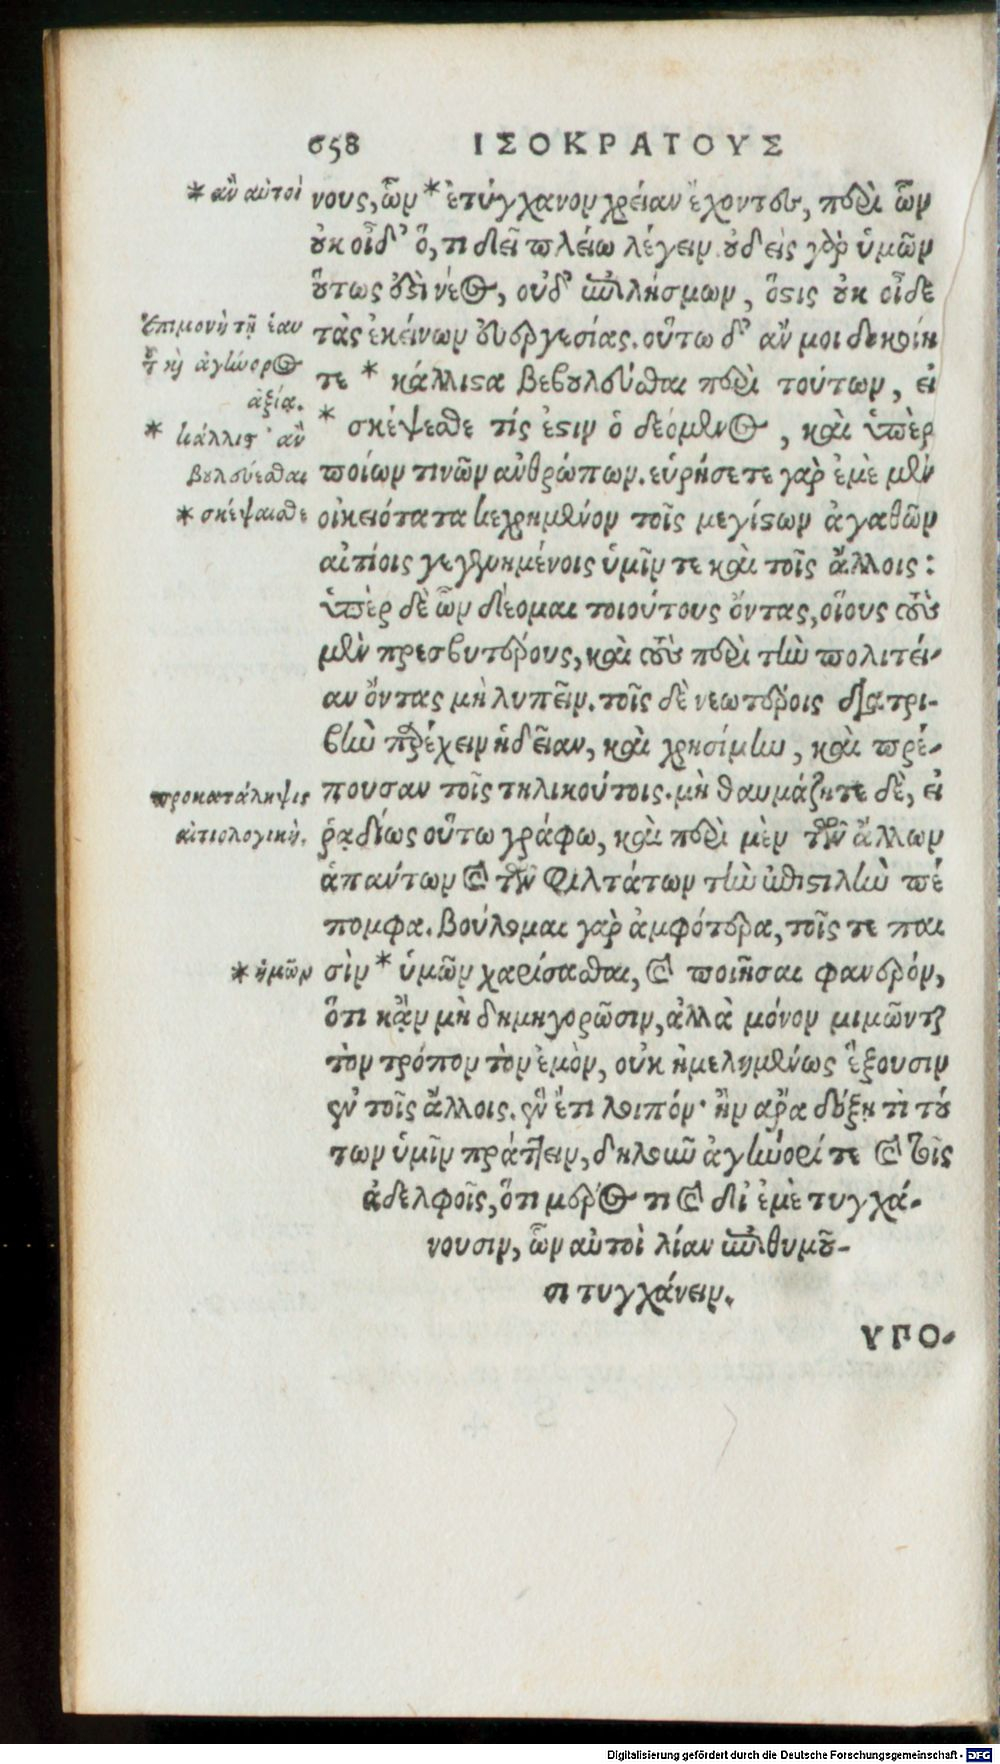 658 ΙΣΟΚΡΑΤΟΥΣ
* ἂν αὐτοὶ
νους, ὧν * ἐτύγχανον χρείαν ἔχοντες, περὶ ὧν
οὐκ οἶδ' ὅ, τι δεῖ πλείω λέγειν. οὐδεὶς γὰρ ὑμῶν
οὕτως ὅτὶ νέος, οὐδ' ἐπιλήσμων, ὅστις οὐκ οἶδε
ἐπιμονὴ τῇ ἑαυ
τὰς ἐκείνων εὐεργεσίας. οὕτω δ' ἄν μοι δοκοίη
τε * κάλλιστα βεβουλεῦσθαι περὶ τούτων, εἰ
ἀξία.
* σκέψεσθε τίς ἐστιν ὁ δεόμενος, καὶ ὑπὲρ
* κάλλιστ' ἂν
βουλεύεσθαι
ποίων τινῶν ἀνθρώπων. εὑρήσετε γὰρ ἐμὲ μὲν
* σκέψαισθε
οἰκειότατα κεχρημένον τοῖς μεγίστων ἀγαθῶν
αἰτίοις γεγενημένοις ὑμῖν τε καὶ τοῖς ἄλλοις:
ὑπὲρ δὲ ὧν δέομαι τοιούτους ὄντας, οἵους τοὺς
μὲν πρεσβυτέρους, καὶ τοὺς περὶ τὴν πολιτεί-
αν ὄντας μὴ λυπεῖν. τοῖς δὲ νεωτέροις διατρι-
βὴν παρέχειν ἡδεῖαν, καὶ χρησίμην, καὶ πρέ-
προκατάληψις
πουσαν τοῖς τηλικούτοις. μὴ θαυμάζητε δὲ, εἰ
αἰτιολογική.
ῥᾳδίως οὕτω γράφω, καὶ περὶ μὲν τῶν ἄλλων
ἁπάντων καὶ τῶν φιλτάτων τὴν ἐπιστολὴν πέ
πομφα. βούλομαι γὰρ ἀμφότερα, τοῖς τε παι
* ἡμῶν
σὶν * ὑμῶν χαρίσασθαι, καὶ ποιῆσαι φανερόν,
ὅτι κᾂν μὴ δημηγορῶσιν, ἀλλὰ μόνον μιμῶνται
τὸν τρόπον τὸν ἐμὸν, οὐκ ἠμελημένως ἕξουσιν
ἐν τοῖς ἄλλοις. ἓν ἔτι λοιπόν· ἢν ἄρα δόξῃ τὶ τού
των ὑμῖν πράττειν, δηλοῦν ἀγήνορί τε καὶ τοῖς
ἀδελφοῖς, ὅτι μέρος τι καὶ δι' ἐμὲ τυγχά-
νουσιν, ὧν αὐτοὶ λίαν ἐπιθυμοῦ-
σι τυγχάνειν.
ΥΠΟ-
Digitalisierung gefördert durch die Deutsche Forschungsgemeinschaft - DFG